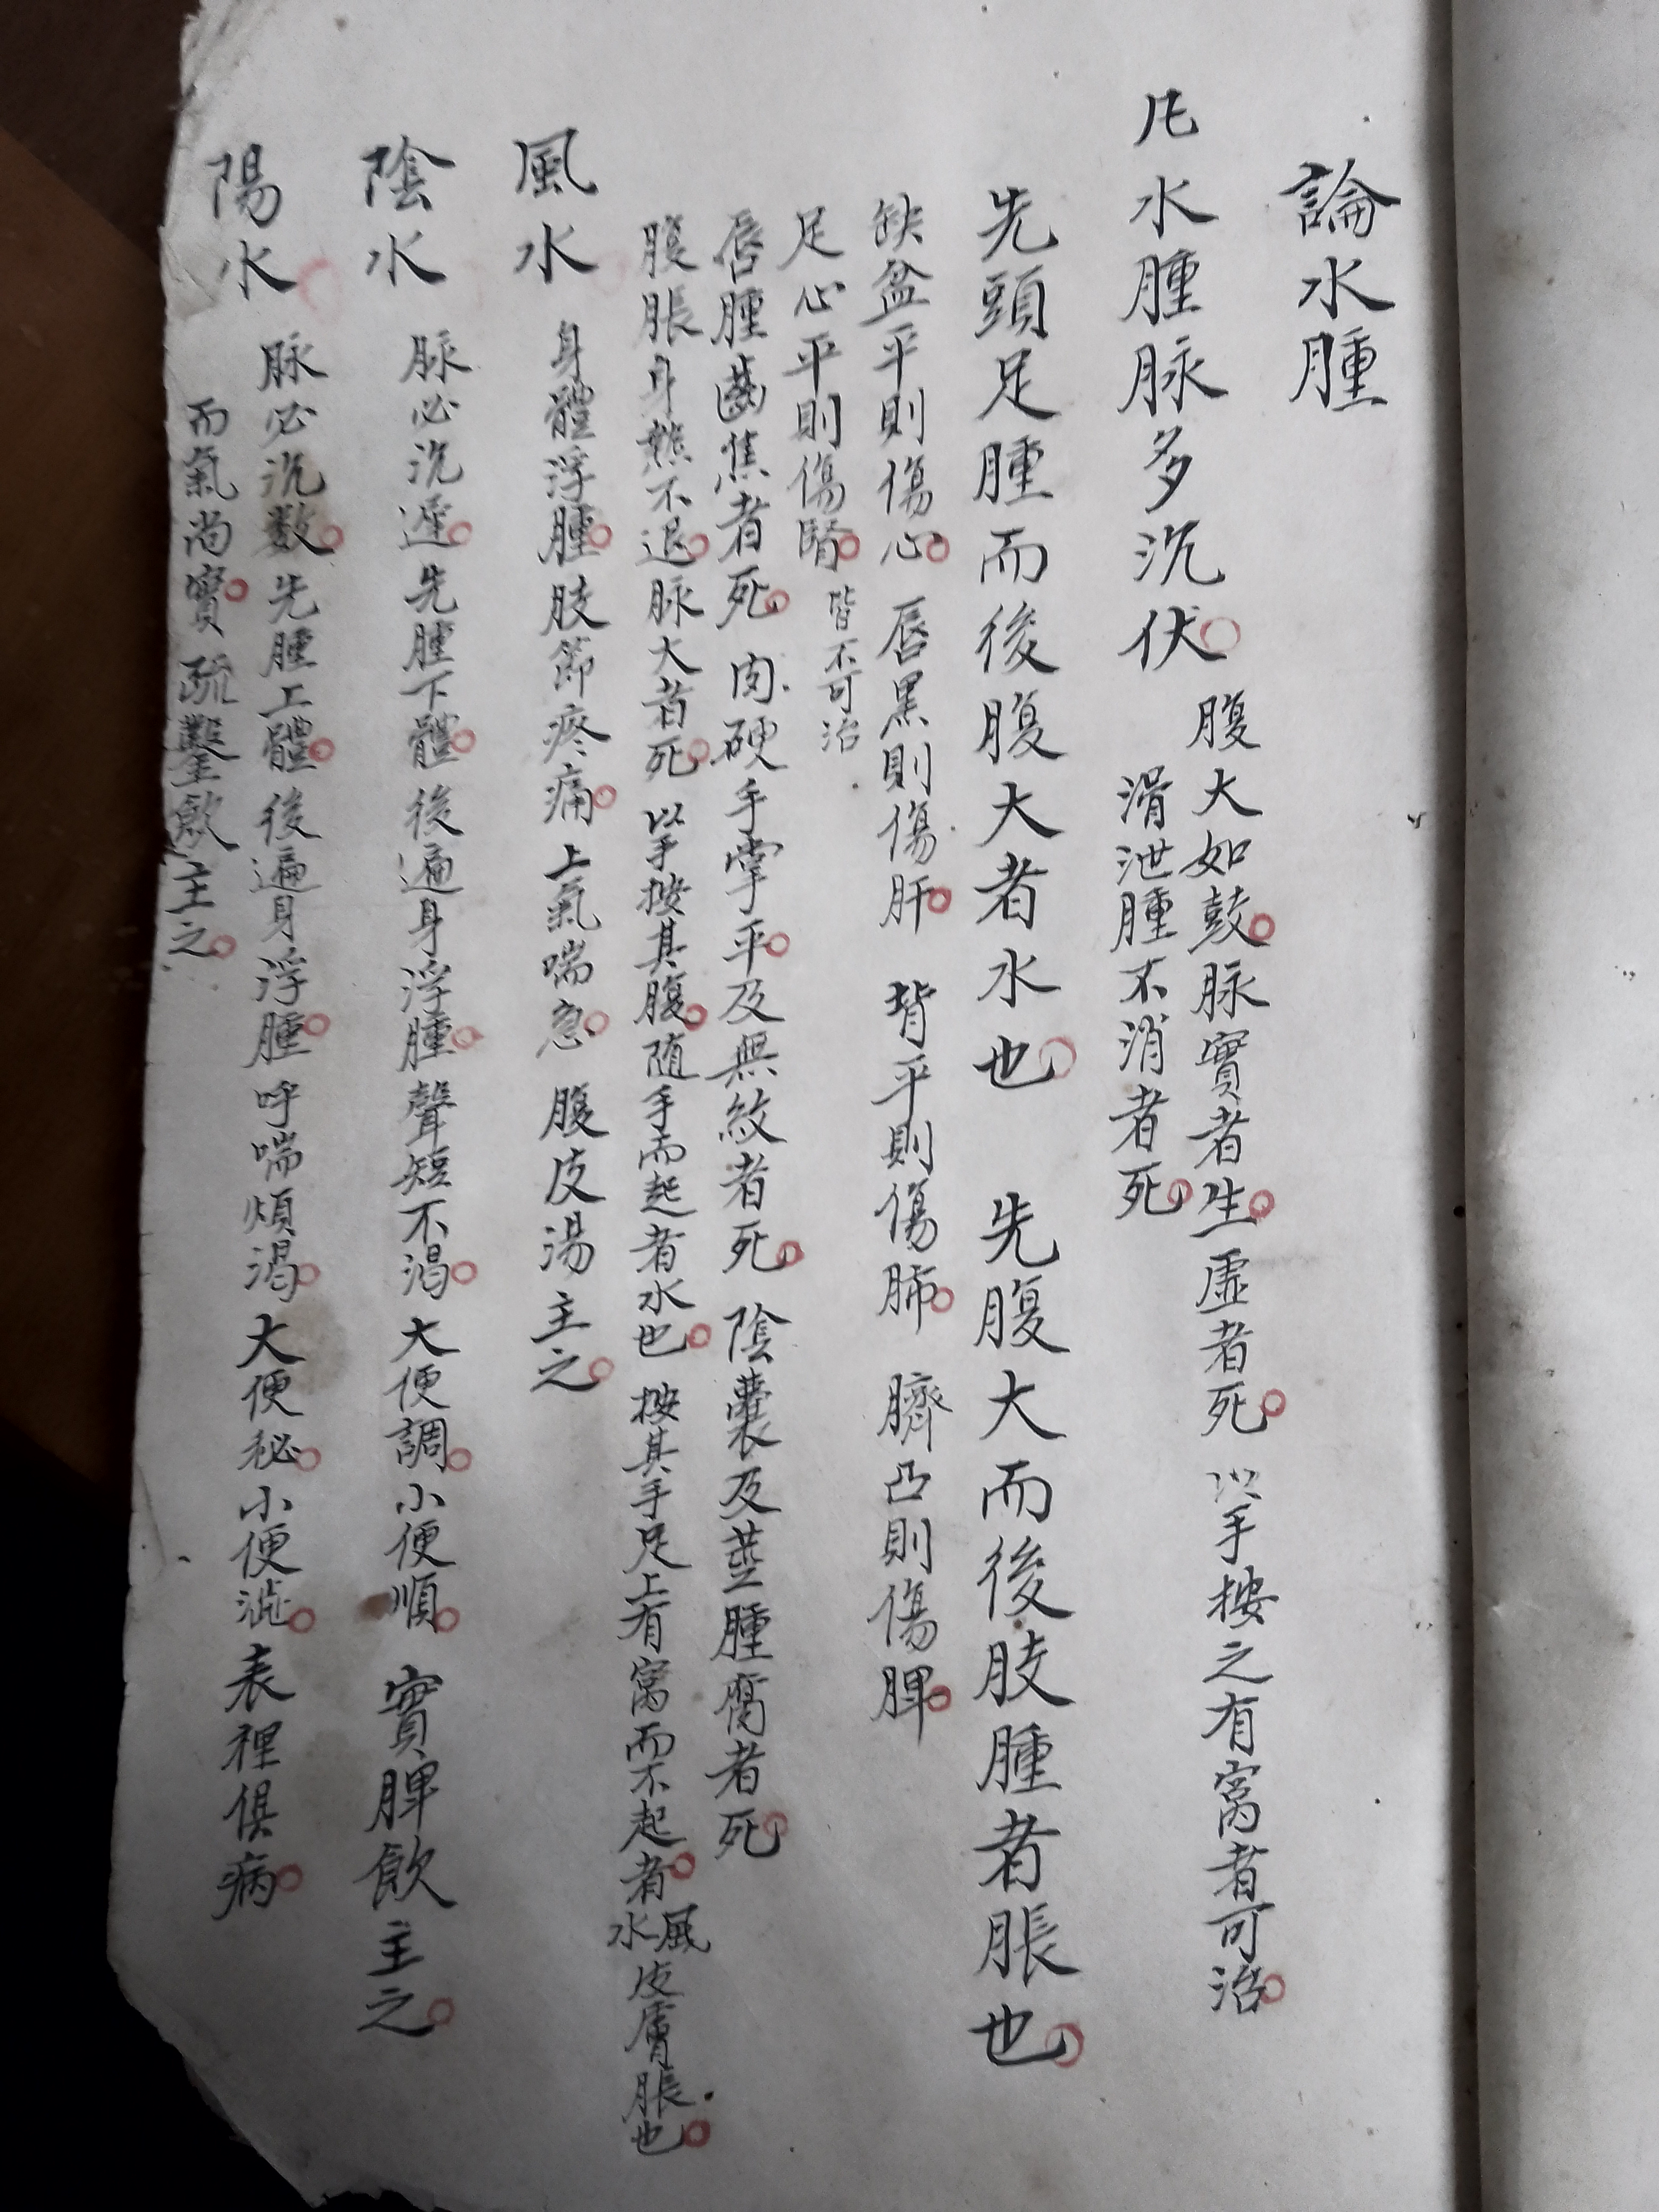 論水腫
凡水腫脉多沉伏
腹大如鼓脉實者生虛者死以手按之有窩者可治
滑泄腫不消者死
先頭足腫而後腹大者水也先腹大而後肢腫者脹也
缺盆平則傷心唇黑則傷肝背平則傷肺臍凸則傷脾
足心平則傷腎皆不可治
唇腫齒焦者死肉硬手掌平及無紋者死陰囊及莖腫腐者死
腹脹身熱不退脉大者死以手按其腹随手而起者水也按其手足上有窩而不起者風水皮膚脹也
風水身體浮腫肢節疼痛上氣喘急腹皮湯主之
陰水脉必沉遲先腫下體後遍身浮腫聲短不渴大便調小便順實脾飲主之
陽水脉必沉数先腫上體後遍身浮腫呼喘煩渴大便秘小便澁表裡俱病
而氣尚實疏鑿飲主之